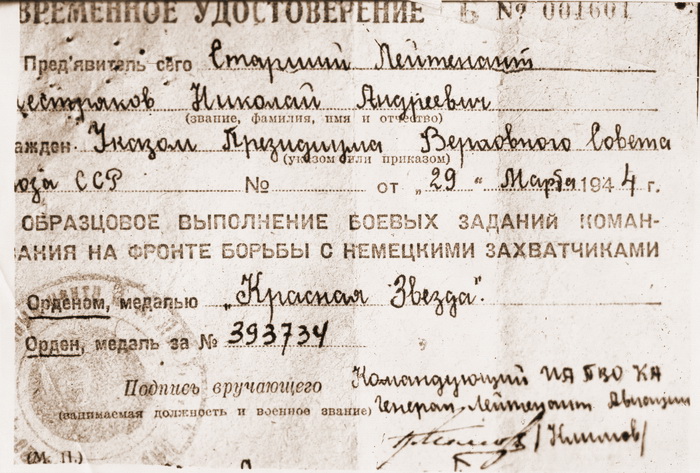 ВРЕМЕННОЕ УДОСТОВЕРЕНИЕ Б № 001601
Пред'явитель сего Старший Лейтенант
естряков Николай Андреевич
(звание, фамилия, имя и отчество)
ажден Указом Президиума Верховного Совета
(указом или приказом)
юза ССР № от „29" Марта 1944 г.
ОБРАЗЦОВОЕ ВЫПОЛНЕНИЕ БОЕВЫХ ЗАДАНИЙ КОМАН-
ВАНИЯ НА ФРОНТЕ БОРЬБЫ С НЕМЕЦКИМИ ЗАХВАТЧИКАМИ
Орденом, медалью „Красная Звезда".
Орден, медаль за № 393734
Подпись вручающего Командующий ИА ПВО КА
(занимаемая должность и военное звание) Генерал-Лейтенант Авиации
/Климов/
(М. П.)